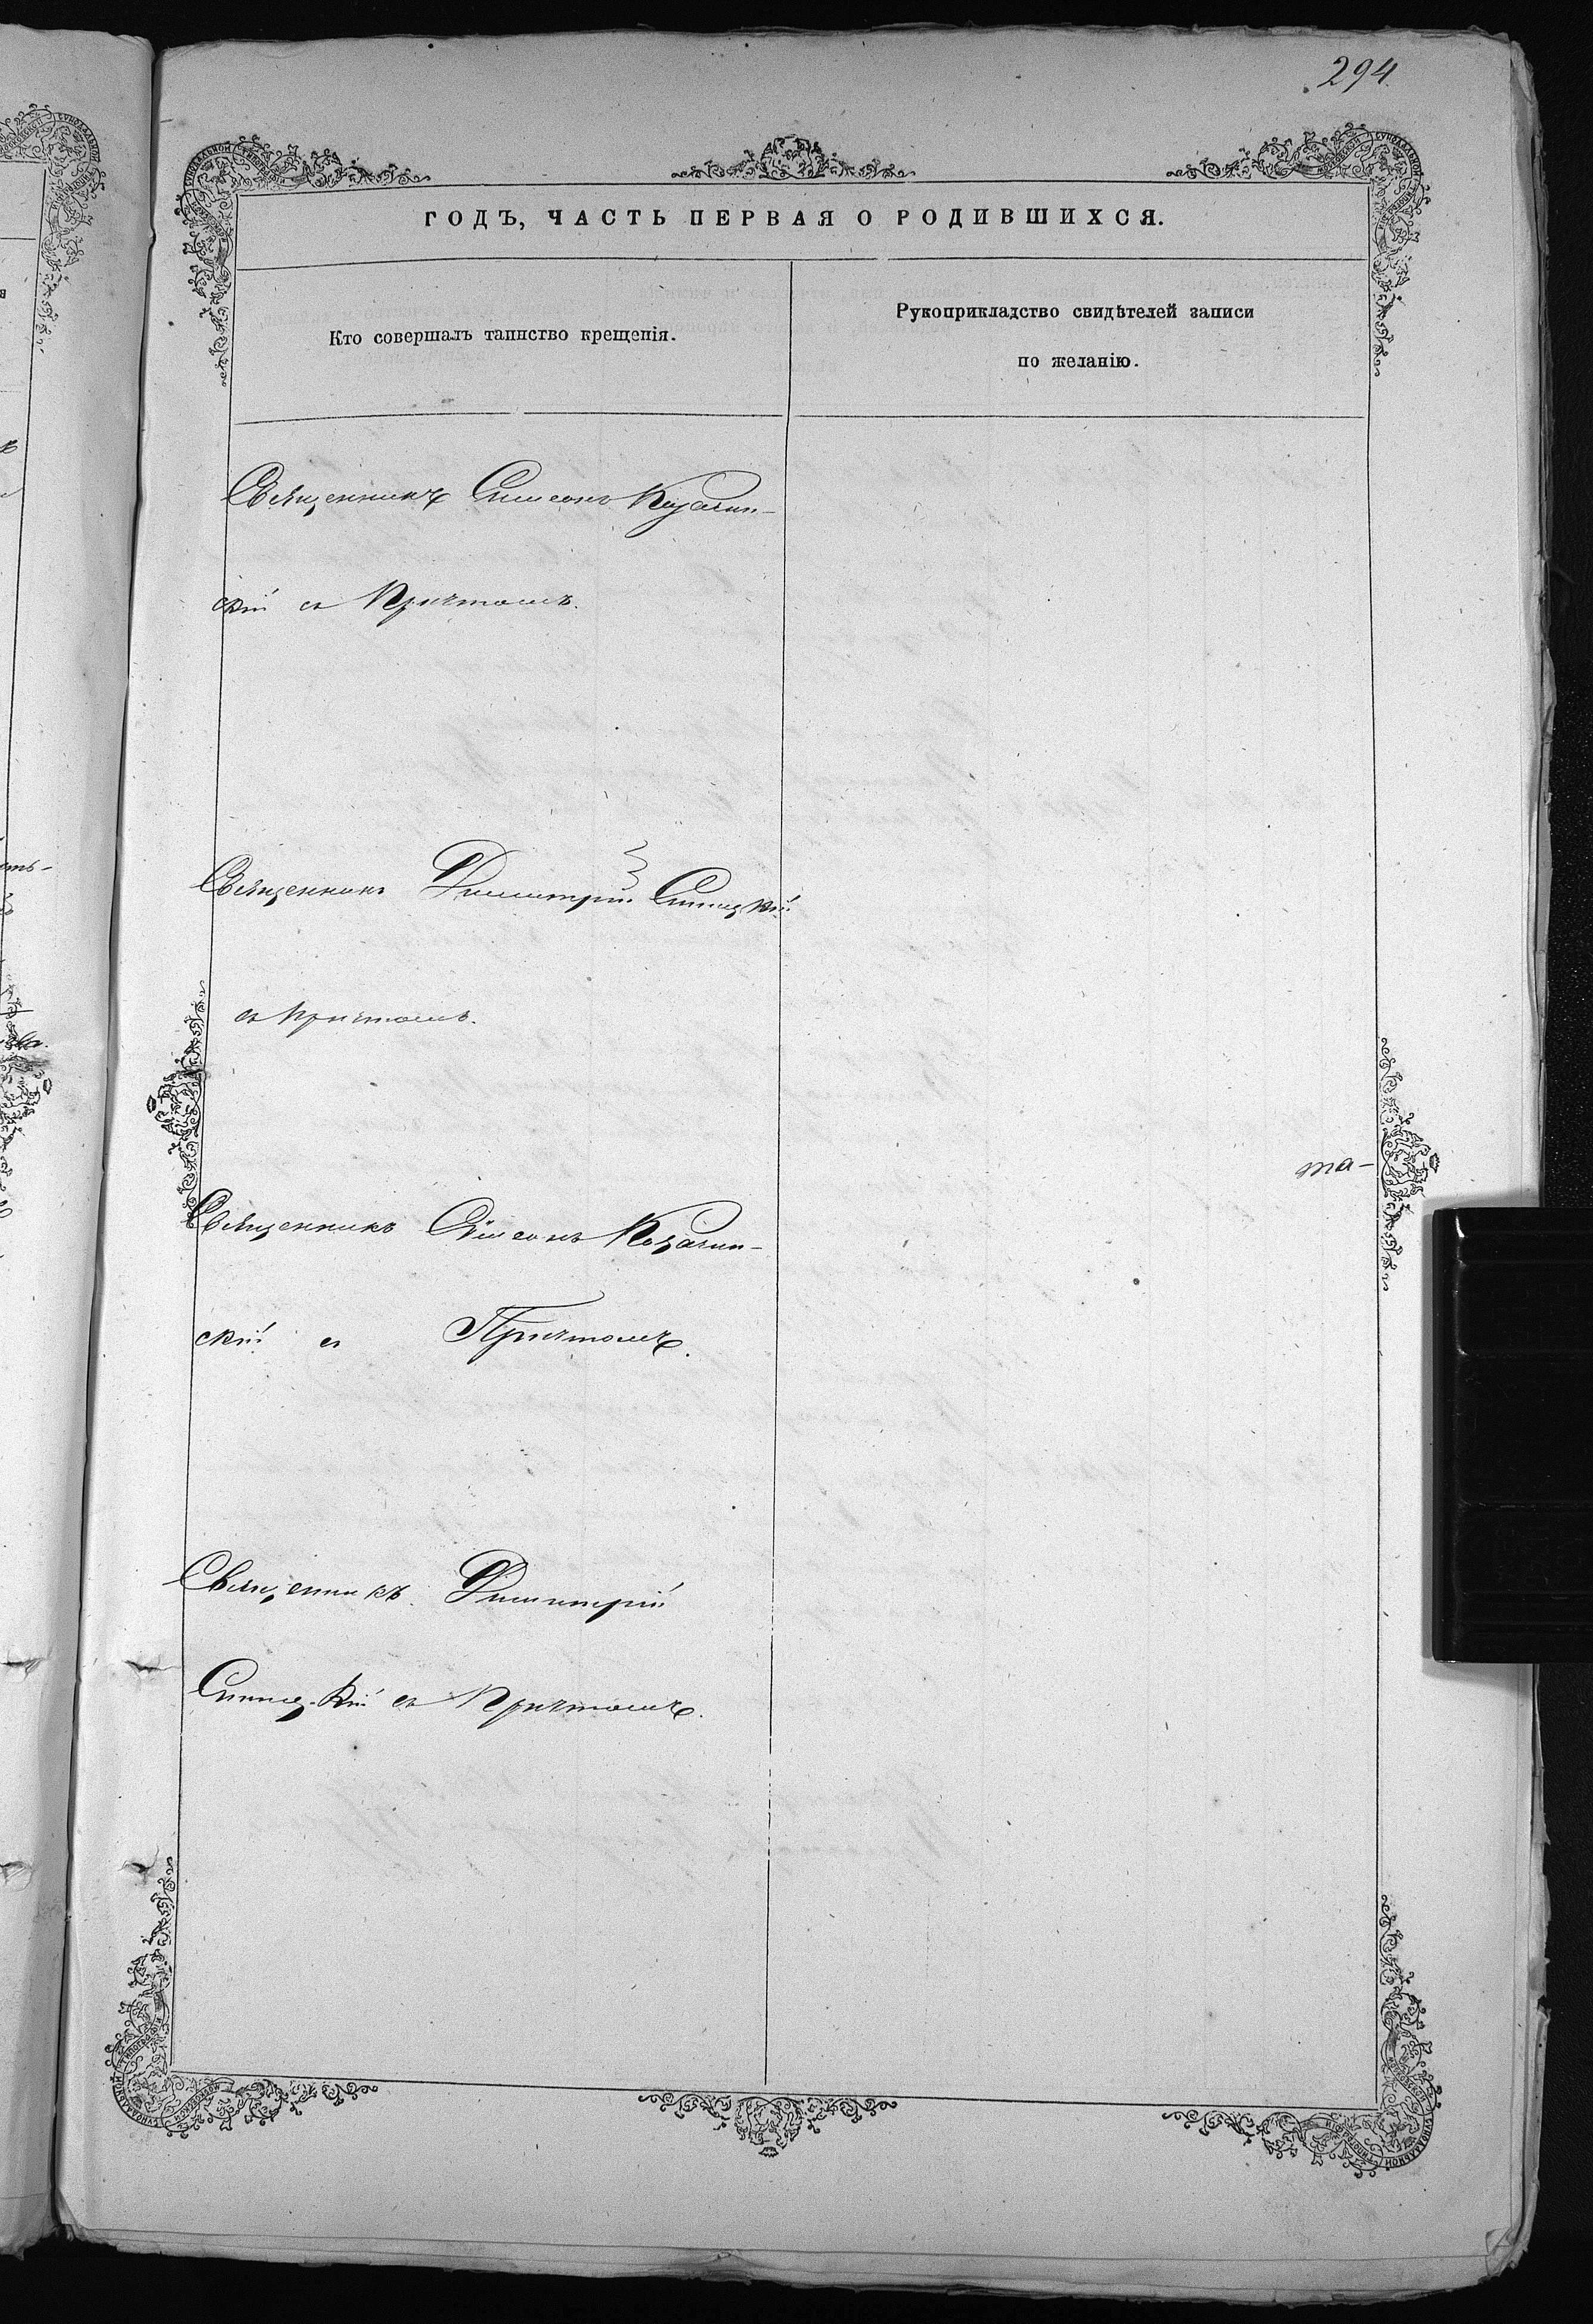 294
ГОДЪ, ЧАСТЬ ПЕРВАЯ О РОДИВШИХСЯ.
Кто совершалъ таинство крещенія.
Рукоприкладство свидѣтелей записи
по желанію.
Священникъ Симеонъ Казанин-
скій съ Причтомъ.
Священникъ Димитрій Синицкій
съ Причтомъ.
та-
Священникъ Симеонъ Козанин-
скій съ Причтомъ.
Священникъ Димитрій
Синицкій съ Причтомъ.